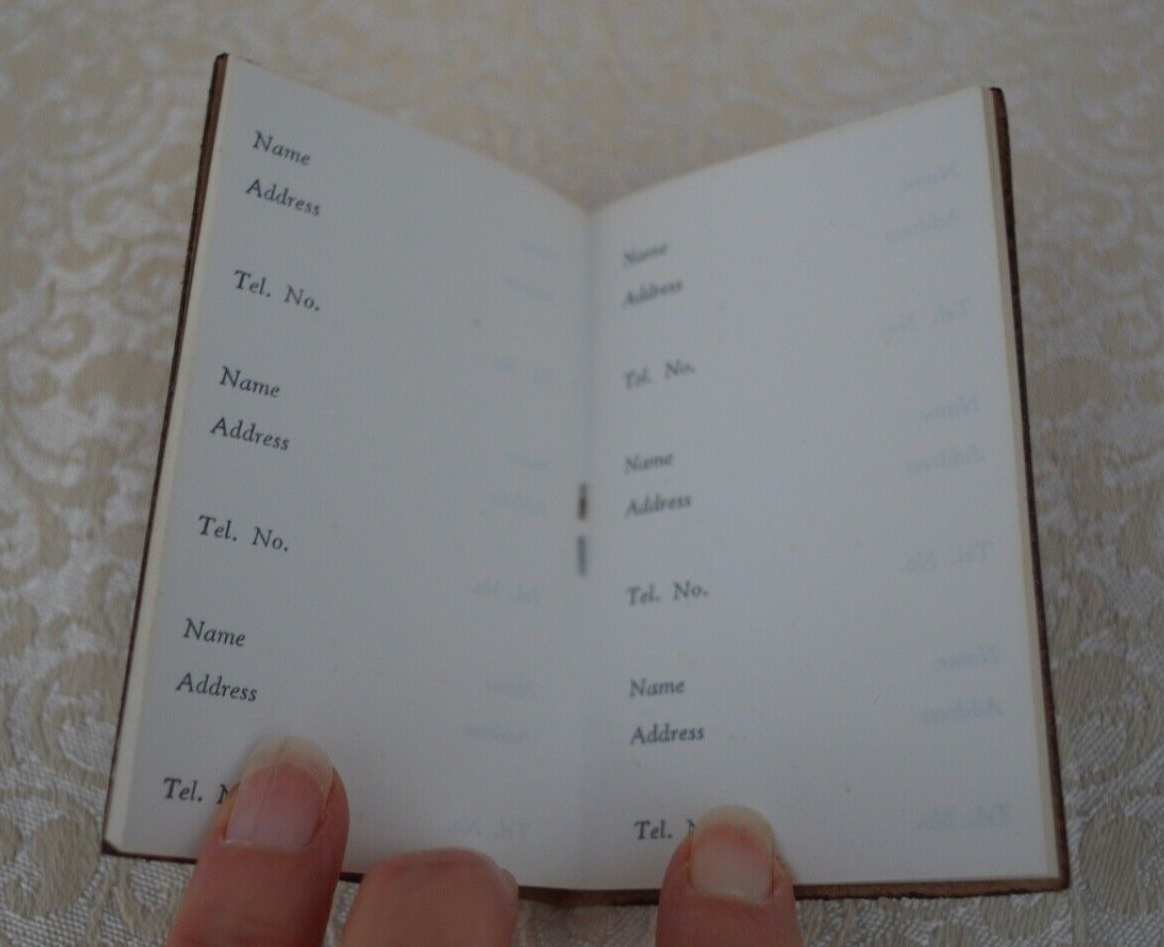 Name
Address
Tel. No.
Name
Address
Tel. No.
Name
Address
Tel.
Name
Address
Tel. No.
Name
Address
Tel. No.
Name
Address
Tel.